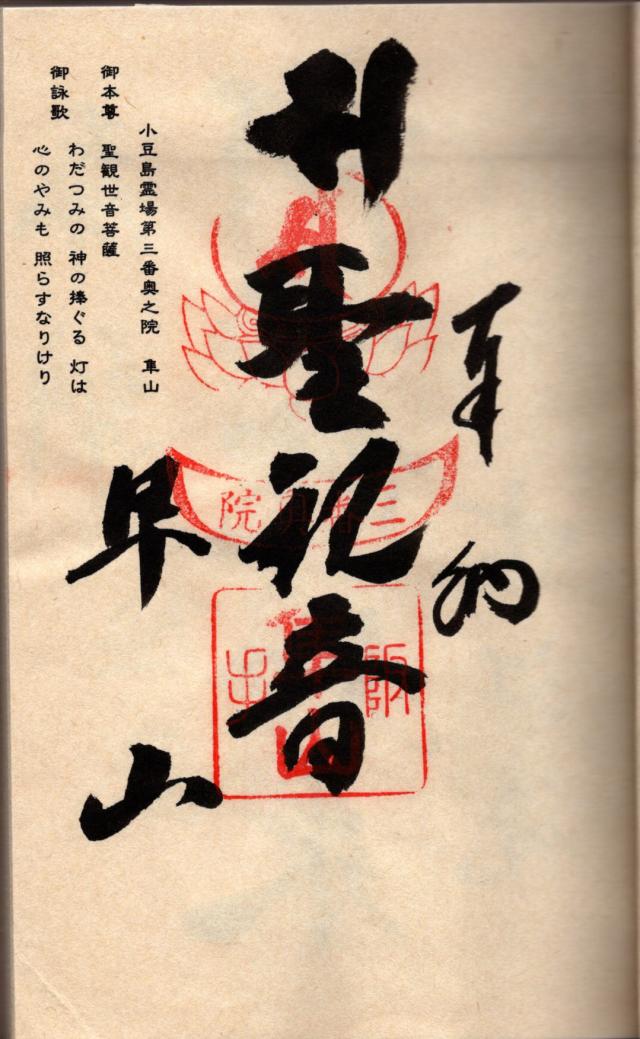 奉納
聖観音
隼山
三番奥院
隼山
小豆島霊場第三番奥之院 隼山
御本尊 聖観世音菩薩
御詠歌 わだつみの 神の捧ぐる 灯は
心のやみも 照らすなりけり